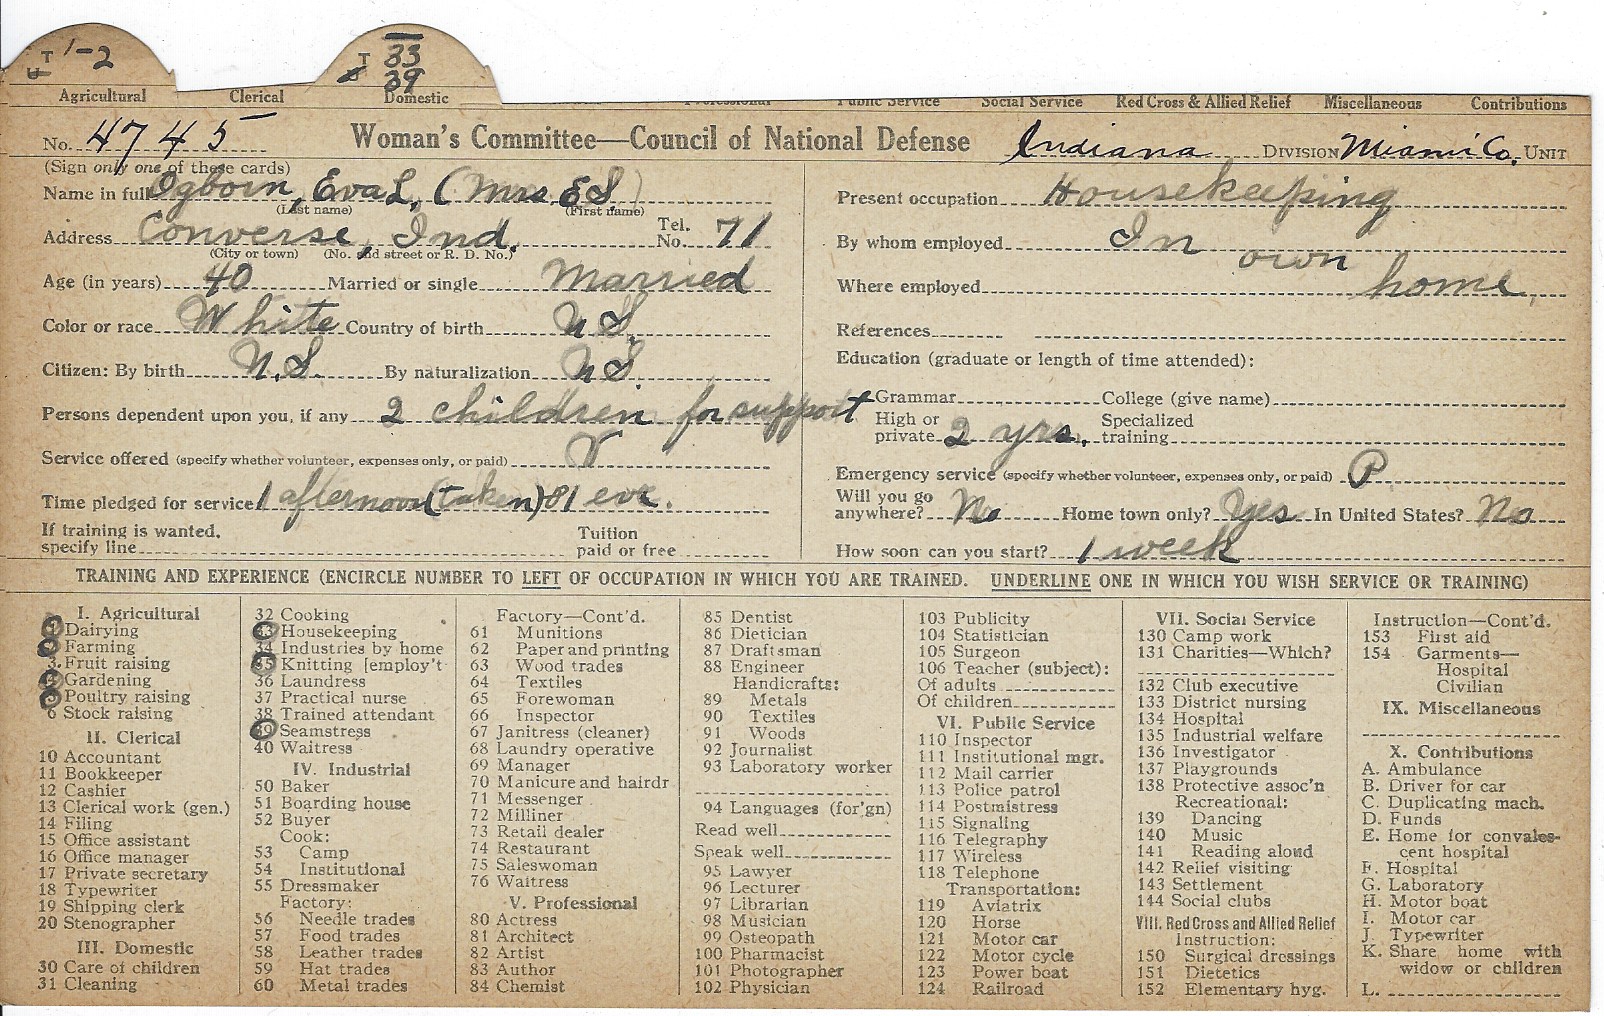 T 1-2
U
T 33
39
Agricultural Clerical Domestic Professional Public Service Social Service Red Cross & Allied Relief Miscellaneous Contributions
No. 4745 Woman's Committee—Council of National Defense Indiana DIVISION Miami Co. UNIT
(Sign only one of these cards)
Name in full Ogborn, Eva L. (Mrs. E S)
(Last name) (First name)
Address Converse, Ind. Tel. No. 71
(City or town) (No. and street or R. D. No.)
Age (in years) 40 Married or single Married
Color or race White Country of birth U S.
Citizen: By birth U.S. By naturalization U S
Persons dependent upon you, if any 2 children for support
Service offered (specify whether volunteer, expenses only, or paid) V
Time pledged for service 1 afternoon (taken) & 1 eve.
If training is wanted, specify line Tuition paid or free
Present occupation Housekeeping
By whom employed In own
Where employed home,
References
Education (graduate or length of time attended):
Grammar College (give name)
High or private 2 yrs. Specialized training
Emergency service (specify whether volunteer, expenses only, or paid) P
Will you go anywhere? No Home town only? Yes In United States? No
How soon can you start? 1 week
TRAINING AND EXPERIENCE (ENCIRCLE NUMBER TO LEFT OF OCCUPATION IN WHICH YOU ARE TRAINED. UNDERLINE ONE IN WHICH YOU WISH SERVICE OR TRAINING)
I. Agricultural
1 Dairying
2 Farming
3 Fruit raising
4 Gardening
5 Poultry raising
6 Stock raising
II. Clerical
10 Accountant
11 Bookkeeper
12 Cashier
13 Clerical work (gen.)
14 Filing
15 Office assistant
16 Office manager
17 Private secretary
18 Typewriter
19 Shipping clerk
20 Stenographer
III. Domestic
30 Care of children
31 Cleaning
32 Cooking
33 Housekeeping
34 Industries by home
35 Knitting [employ't
36 Laundress
37 Practical nurse
38 Trained attendant
39 Seamstress
40 Waitress
IV. Industrial
50 Baker
51 Boarding house
52 Buyer
Cook:
53 Camp
54 Institutional
55 Dressmaker
Factory:
56 Needle trades
57 Food trades
58 Leather trades
59 Hat trades
60 Metal trades
Factory—Cont'd.
61 Munitions
62 Paper and printing
63 Wood trades
64 Textiles
65 Forewoman
66 Inspector
67 Janitress (cleaner)
68 Laundry operative
69 Manager
70 Manicure and hairdr
71 Messenger
72 Milliner
73 Retail dealer
74 Restaurant
75 Saleswoman
76 Waitress
V. Professional
80 Actress
81 Architect
82 Artist
83 Author
84 Chemist
85 Dentist
86 Dietician
87 Draftsman
88 Engineer
Handicrafts:
89 Metals
90 Textiles
91 Woods
92 Journalist
93 Laboratory worker
94 Languages (for'gn)
Read well
Speak well
95 Lawyer
96 Lecturer
97 Librarian
98 Musician
99 Osteopath
100 Pharmacist
101 Photographer
102 Physician
103 Publicity
104 Statistician
105 Surgeon
106 Teacher (subject):
Of adults
Of children
VI. Public Service
110 Inspector
111 Institutional mgr.
112 Mail carrier
113 Police patrol
114 Postmistress
115 Signaling
116 Telegraphy
117 Wireless
118 Telephone
Transportation:
119 Aviatrix
120 Horse
121 Motor car
122 Motor cycle
123 Power boat
124 Railroad
VII. Social Service
130 Camp work
131 Charities—Which?
132 Club executive
133 District nursing
134 Hospital
135 Industrial welfare
136 Investigator
137 Playgrounds
138 Protective assoc'n
Recreational:
139 Dancing
140 Music
141 Reading aloud
142 Relief visiting
143 Settlement
144 Social clubs
VIII. Red Cross and Allied Relief
Instruction:
150 Surgical dressings
151 Dietetics
152 Elementary hyg.
Instruction—Cont'd.
153 First aid
154 Garments—
Hospital
Civilian
IX. Miscellaneous
X. Contributions
A. Ambulance
B. Driver for car
C. Duplicating mach.
D. Funds
E. Home for convales-
cent hospital
F. Hospital
G. Laboratory
H. Motor boat
I. Motor car
J. Typewriter
K. Share home with
widow or children
L.